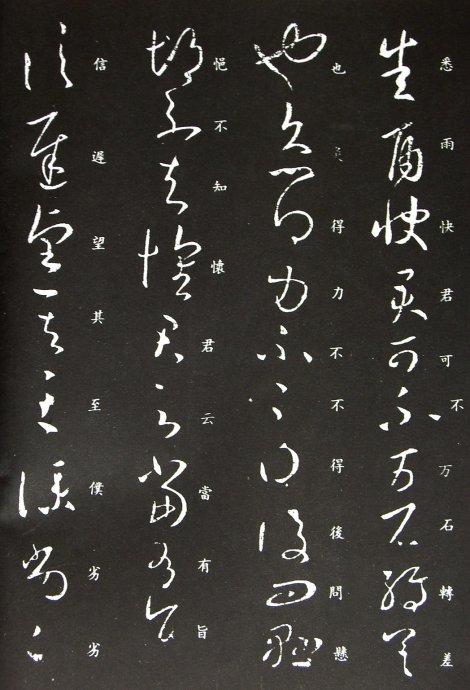 悉雨快君可不万石轉差
也灸得力不不得後問懸
悒不知懷君云當有旨
信遲望其至僕劣劣